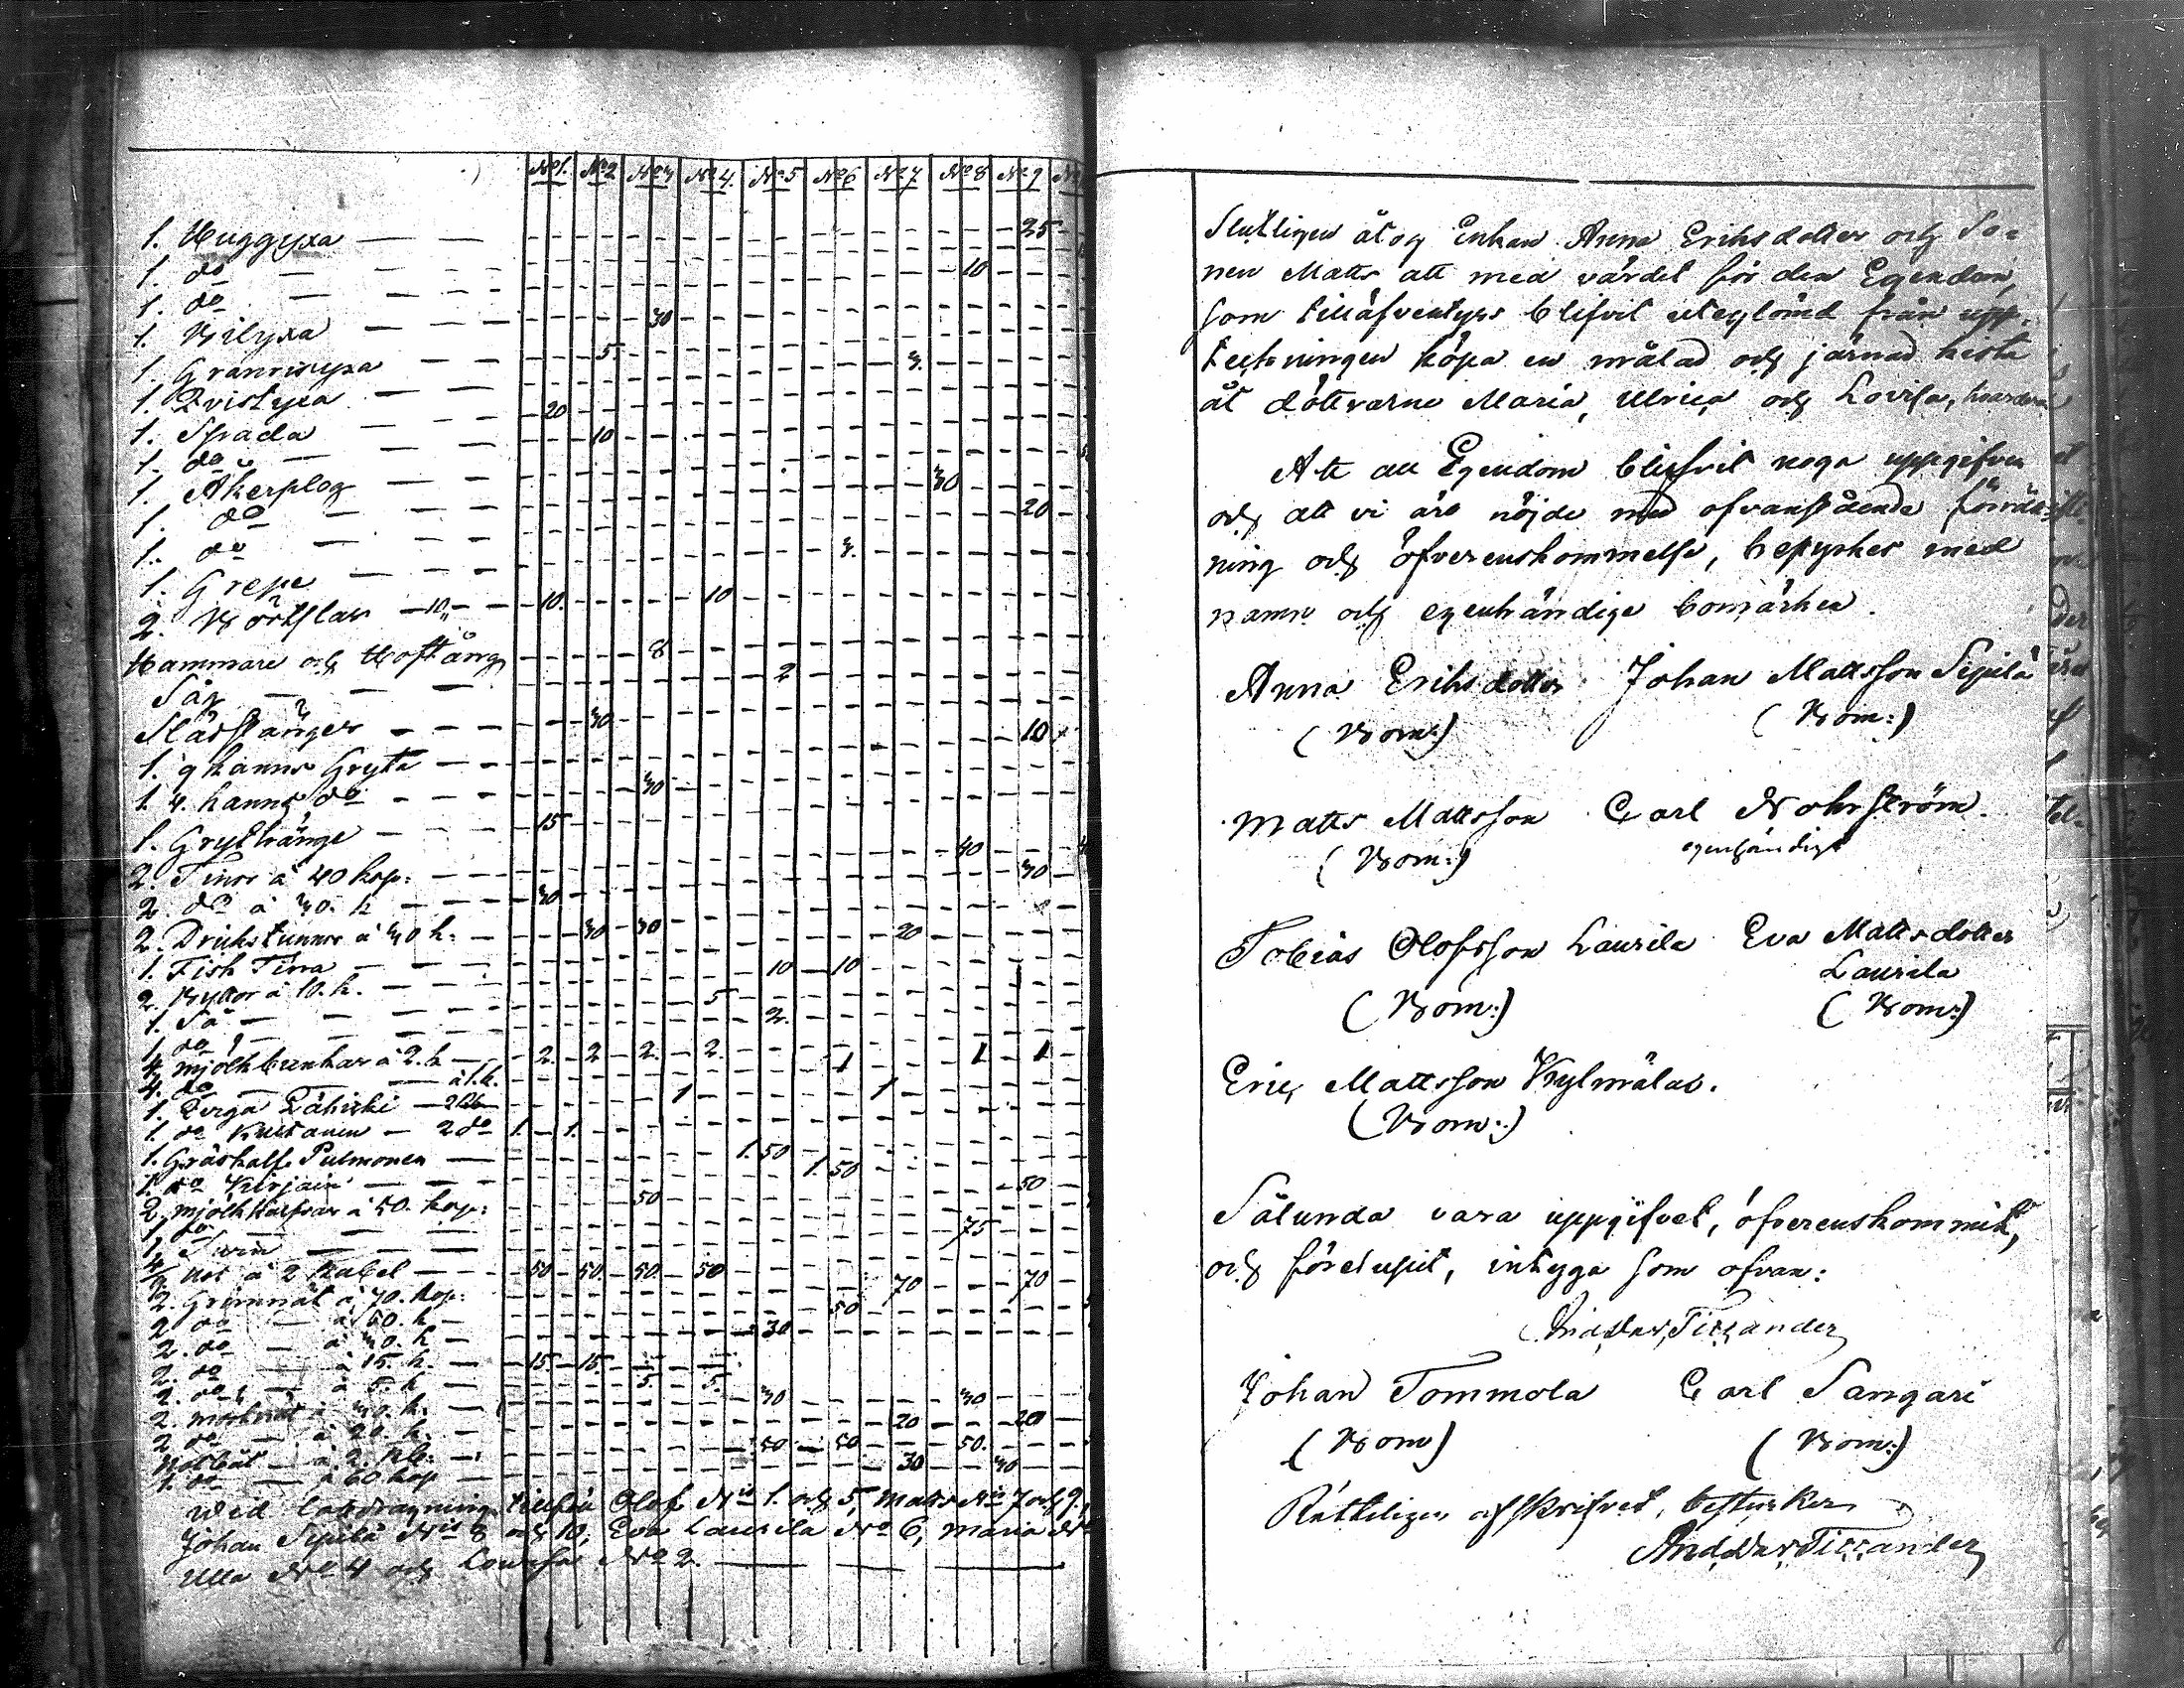 No 1. No 2 No 3 No 4. No 5 No 6 No 7 No 8 No 9 No
1. Huggyxa — — 25
1. do — 10
1. do —
1. Bilyxa — — 30
1. Granrisyxa — 5 3.
1. Qvistyxa — 20
1. Spada 10
1. do —
1. Åkerplog — — 30
1. do — 20
1. do — 3.
1. Grepe
2. — 10 — 10. 10
Hammare och Hoftång 8
Såg — — 2
30
1. 9 kanns Gryta — 10
1. 4. kanns do — 30
1. Grythänge — 15
2. Tinor à 40 kop: 40
2. do à 30. k 30 30
2. Drickstunnor à 30 k. 30 30
1. Fisk Tina — 20
2. Byttor à 10. k. 10 10
1. Så — 5
1. do — 2.
4. mjölkbunkar à 2. k — 2. 2 2. 2.
4. do — à 1. k. 1 1 1 1 1
1. — 2 Rb
1. do — 2 do 1. 1.
1. Gråskalf. Pulmonen — 1. 50
1. do Kirjain — 1. 50
2. mjölk à 50. kop: 50 50
1. do —
1. Svin — 75
4/ Not à 2 Rubel — 50 50. 50. 50
2. Grimnät à 70. kop: 70 70
2. do — à 50. k — 50
2. do — à 30. k — 30
2. do — à 15. k. — 15. 15.
2. do — à 5. k — 5. 5.
2. à 30. k. — 30 30
2. do — à 20. k. — 20 20
Notbåt — à 2. Rb: 50 50 50.
1. do — à 60 kop 30 30
Wid Lottdragning tillföll Olof No 1. och 5, Matts No 7 och 9,
Johan Sipilä No 8 och 10, Eva Laurila No 6, Maria No
Ulla No 4 och Lovisa No 2.
Slutligen åtog Enkan Anna Eriksdotter och So-
nen Matts att med värdet för den Egendom,
som tilläfventyrs blifvit uteglömd från upp-
teckningen köpa en målad och järnad kista
åt döttrarne Maria, Ulrica och Lovisa, hvardera
Att all Egendom blifvit noga uppgifven
och att vi äro nöjde med ofvanstående förrätt-
ning och öfverenskommelse, betyrkes med
namn och egenhändige bomärken.
Anna Eriksdotter Johan Mattsson Sipilä
(Bom:) (Bom:)
Matts Mattsson Carl Nohrström.
(Bom:) egenhändigt
Tobias Olofsson Laurila Eva Mattsdotter
Laurila
(Bom:) (Bom:)
Eric Mattsson Kylmälas.
(Bom:)
Sålunda vara uppgifvet, öfverenskommit,
och förelupit, intyga som ofvan:
And: Tizzander
Johan Tommola Carl Sangari
(Bom) (Bom:)
Rätteligen afskrifvet, bestyrker
And: Tizzander